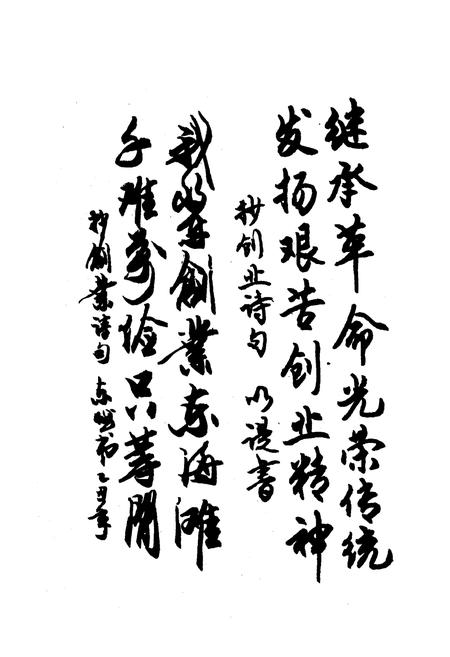 继承革命光荣传统
发扬艰苦创业精神
抄创业诗句 书
我創業东海滩
千难萬险只等閒
抄創業诗句 东书乙丑年